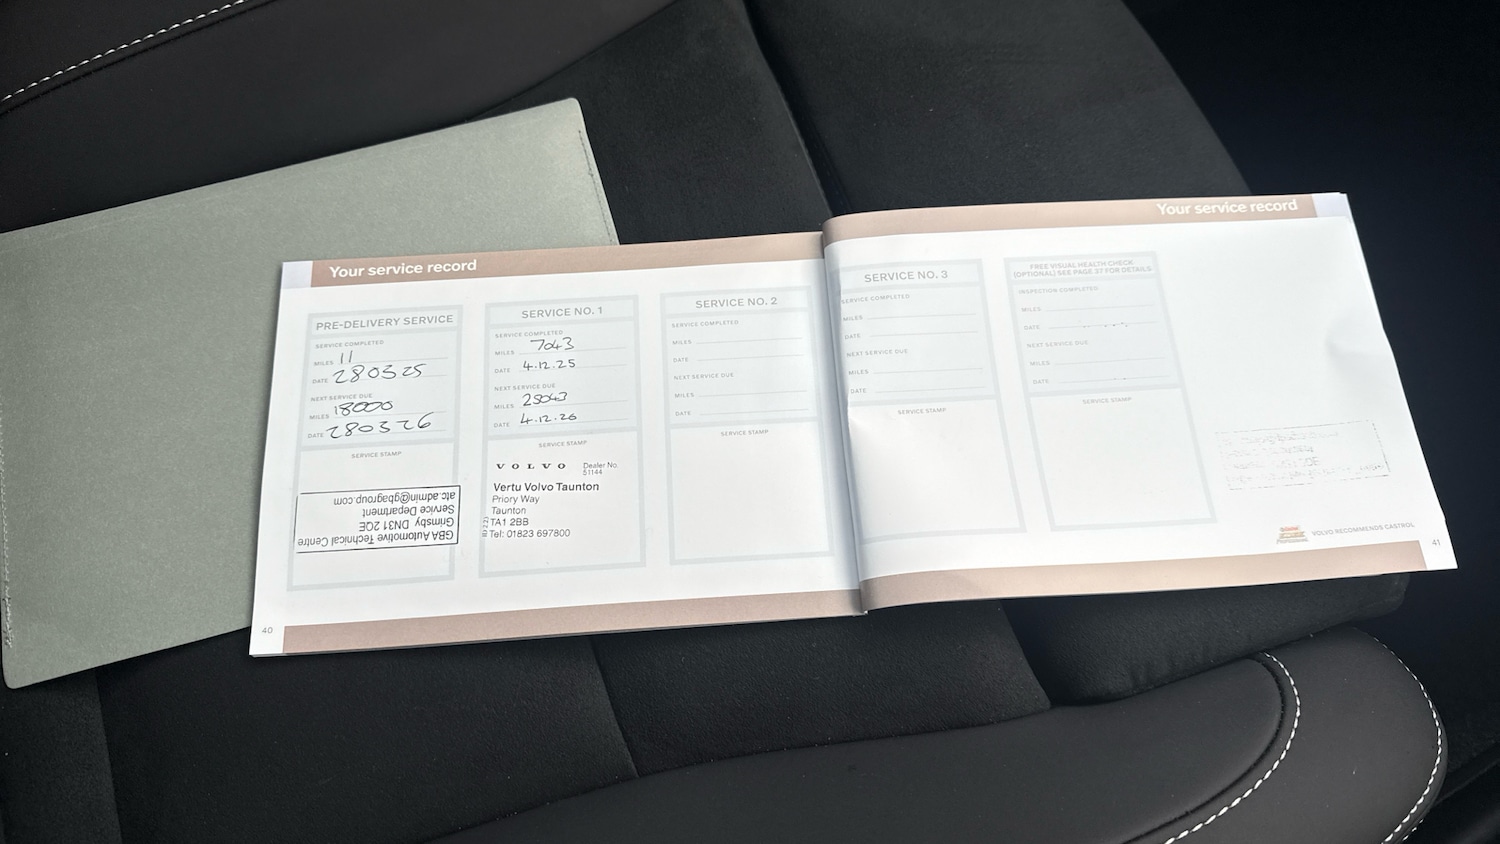 Your service record
PRE-DELIVERY SERVICE
SERVICE COMPLETED
MILES 11
DATE 280325
NEXT SERVICE DUE
MILES 18000
DATE 280326
SERVICE STAMP
GBA Automotive Technical Centre
Grimsby DN31 2QE
Service Department
atc.admin@gbagroup.com
SERVICE NO. 1
SERVICE COMPLETED
MILES 7043
DATE 4.12.25
NEXT SERVICE DUE
MILES 25043
DATE 4.12.26
SERVICE STAMP
VOLVO Dealer No.
51144
Vertu Volvo Taunton
Priory Way
Taunton
TA1 2BB
Tel: 01823 697800
SERVICE NO. 2
SERVICE COMPLETED
MILES
DATE
NEXT SERVICE DUE
MILES
DATE
SERVICE STAMP
40
Your service record
SERVICE NO. 3
SERVICE COMPLETED
MILES
DATE
NEXT SERVICE DUE
MILES
DATE
SERVICE STAMP
FREE VISUAL HEALTH CHECK
(OPTIONAL) SEE PAGE 37 FOR DETAILS
INSPECTION COMPLETED
MILES
DATE
NEXT SERVICE DUE
MILES
DATE
SERVICE STAMP
VOLVO RECOMMENDS CASTROL
41